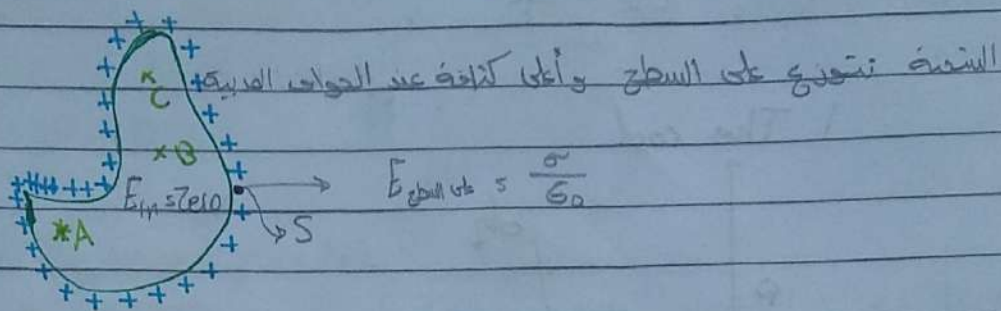 الشحنة تتوزع على السطح وأعلى كثافة عند الحواف المدببة
C
B
E in = Zero
E على السطح = σ/ε₀
A
S